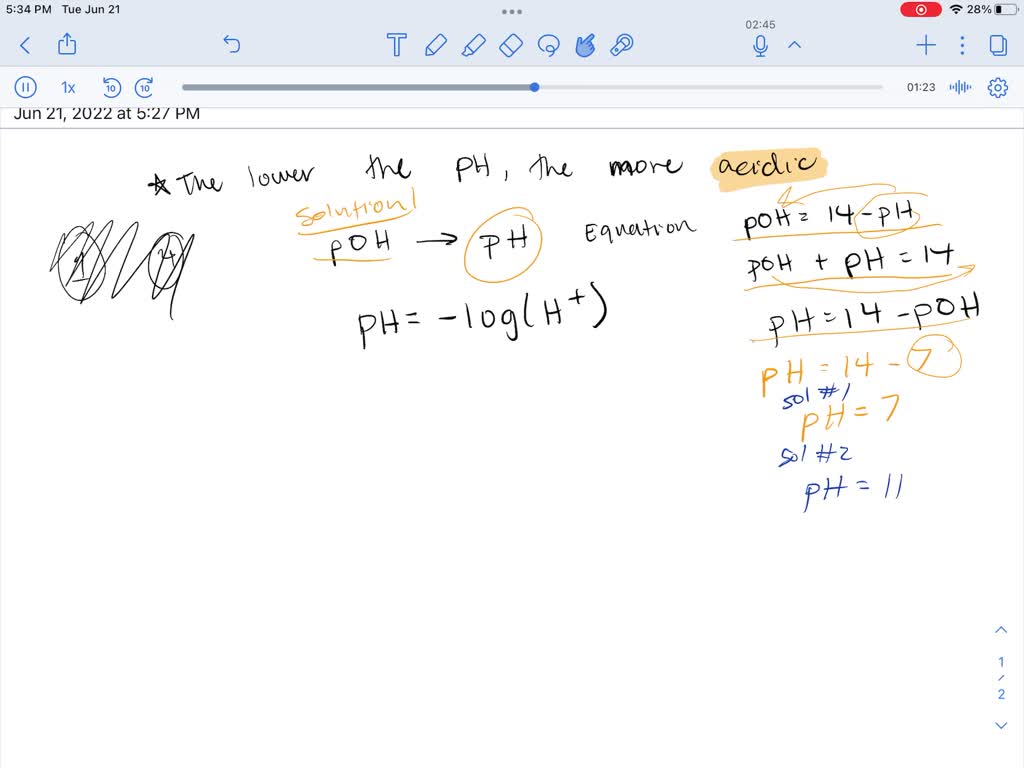 5:34 PM Tue Jun 21
28%
02:45
1x
10
10
01:23
Jun 21, 2022 at 5:27 PM
The lower the pH, the more acidic
Solution 1
pOH → pH Equation
pOH = 14 - pH
pOH + pH = 14
pH = - log(H+)
pH = 14 - pOH
pH = 14 - 7
sol #1
pH = 7
sol #2
pH = 11
1
2